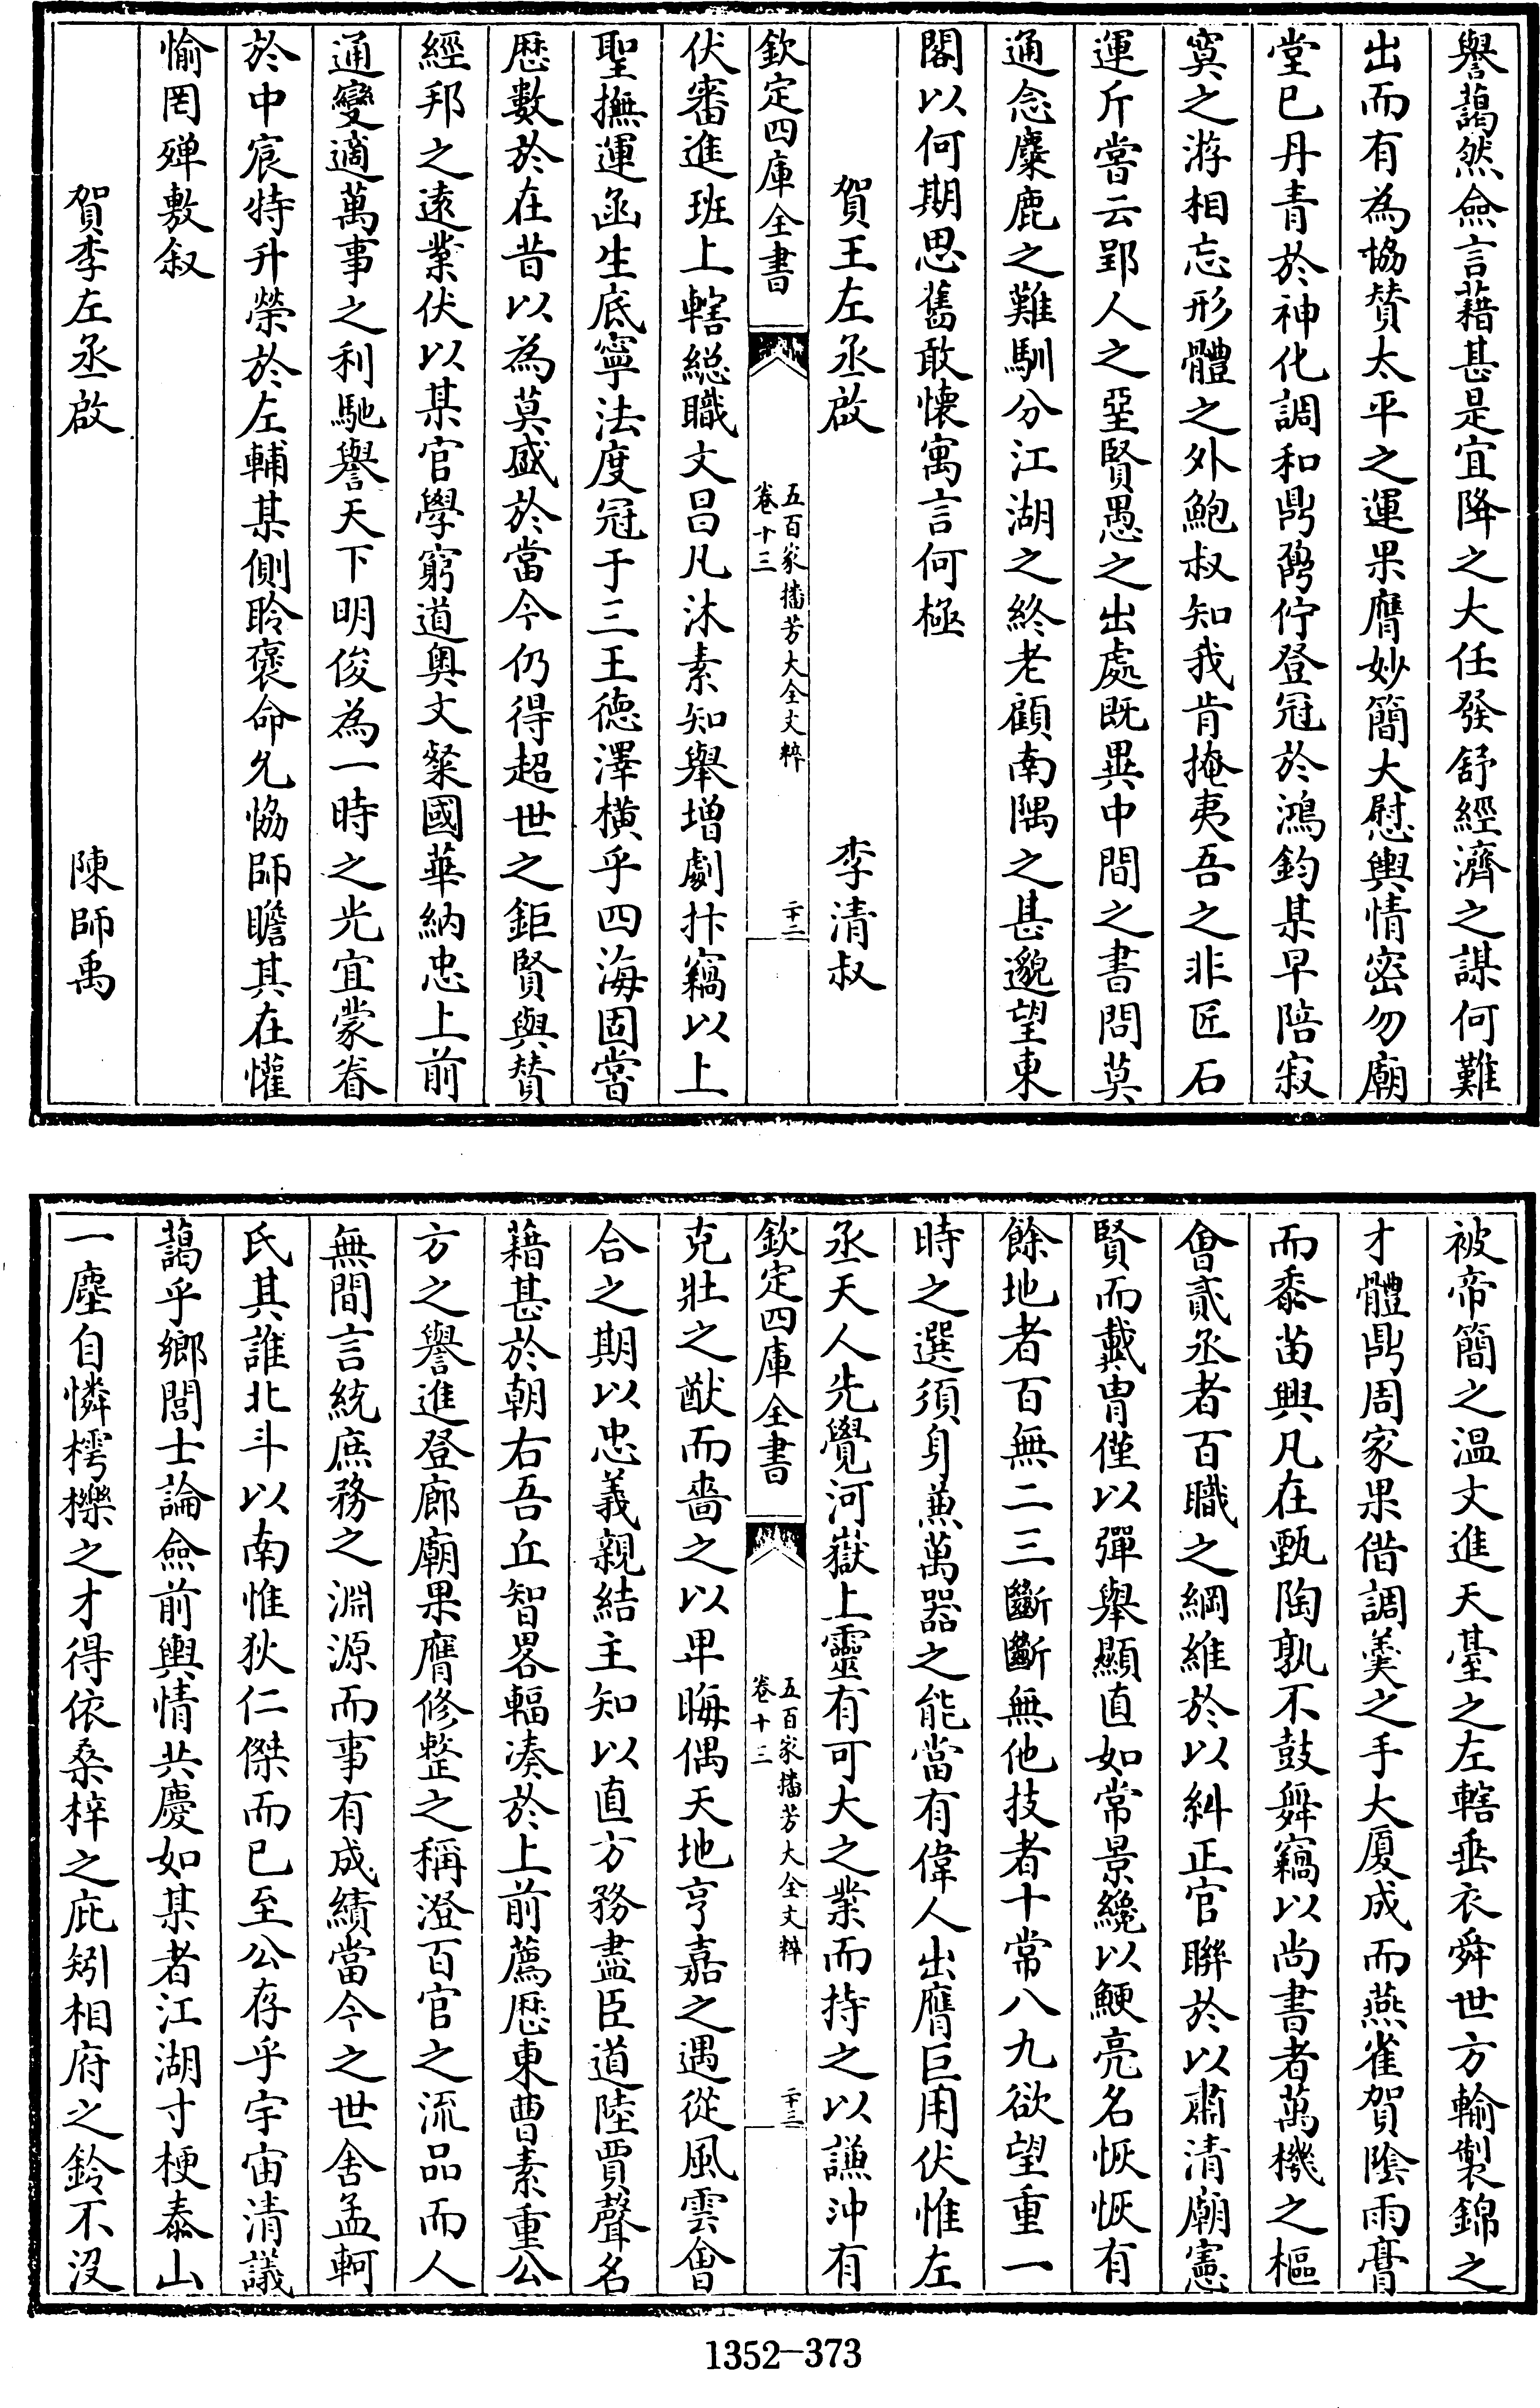 譽藹然僉言藉甚是宜降之大任發舒經濟之謀何難
出而有為協賛太平之運果膺妙簡大慰輿情密勿廟
堂已丹青於神化調和鼎鼐佇登冠於鴻鈞某早陪寂
寞之游相忘形體之外鮑叔知我肯掩夷吾之非匠石
運斤嘗云郢人之堊賢愚之出處既異中間之書問莫
通念麋鹿之難馴分江湖之終老顧南隅之甚邈望東
閣以何期思舊敢懐寓言何極
賀王左丞啟　李清叔
欽定四庫全書
五百家播芳大全文粹
卷十三
二十二
伏審進班上轄總職文昌凡沐素知舉增劇抃竊以上
聖撫運函生底寧法度冠于三王德澤橫乎四海固嘗
歴數於在昔以為莫盛於當今仍得超世之鉅賢與賛
經邦之逺業伏以某官學窮道奥文粲國華納忠上前
通變適萬事之利馳譽天下明俊為一時之光宜蒙眷
於中宸特升榮於左輔某側聆褒命允協師瞻其在懽
愉罔殫敷叙
賀李左丞啟　陳師禹
被帝簡之温文進天臺之左轄垂衣舜世方輸製錦之
才體鼎周家果借調羹之手大厦成而燕雀賀陰雨膏
而黍苗興凡在甄陶孰不鼓舞竊以尚書者萬機之樞
會貳丞者百職之綱維於以糾正官聯於以肅清廟憲
賢而戴冑僅以彈舉顯直如常景纔以鯁亮名恢恢有
餘地者百無二三斷斷無他技者十常八九欲望重一
時之選須身兼萬器之能當有偉人出膺巨用伏惟左
丞天人先覺河嶽上靈有可大之業而持之以謙沖有
欽定四庫全書
五百家播芳大全文粹
卷十三
二十三
克壯之猷而嗇之以卑晦偶天地亨嘉之遇從風雲會
合之期以忠義親結主知以直方務盡臣道陸賈聲名
藉甚於朝右吾丘智畧輻湊於上前薦歴東曹素重公
方之譽進登廊廟果膺修整之稱澄百官之流品而人
無間言統庶務之淵源而事有成績當今之世舍孟軻
氏其誰北斗以南惟狄仁傑而已至公存乎宇宙清議
藹乎鄉閭士論僉前輿情共慶如某者江湖寸梗泰山
一塵自憐樗櫟之才得依桑梓之庇矧相府之鈴不沒
1352-373